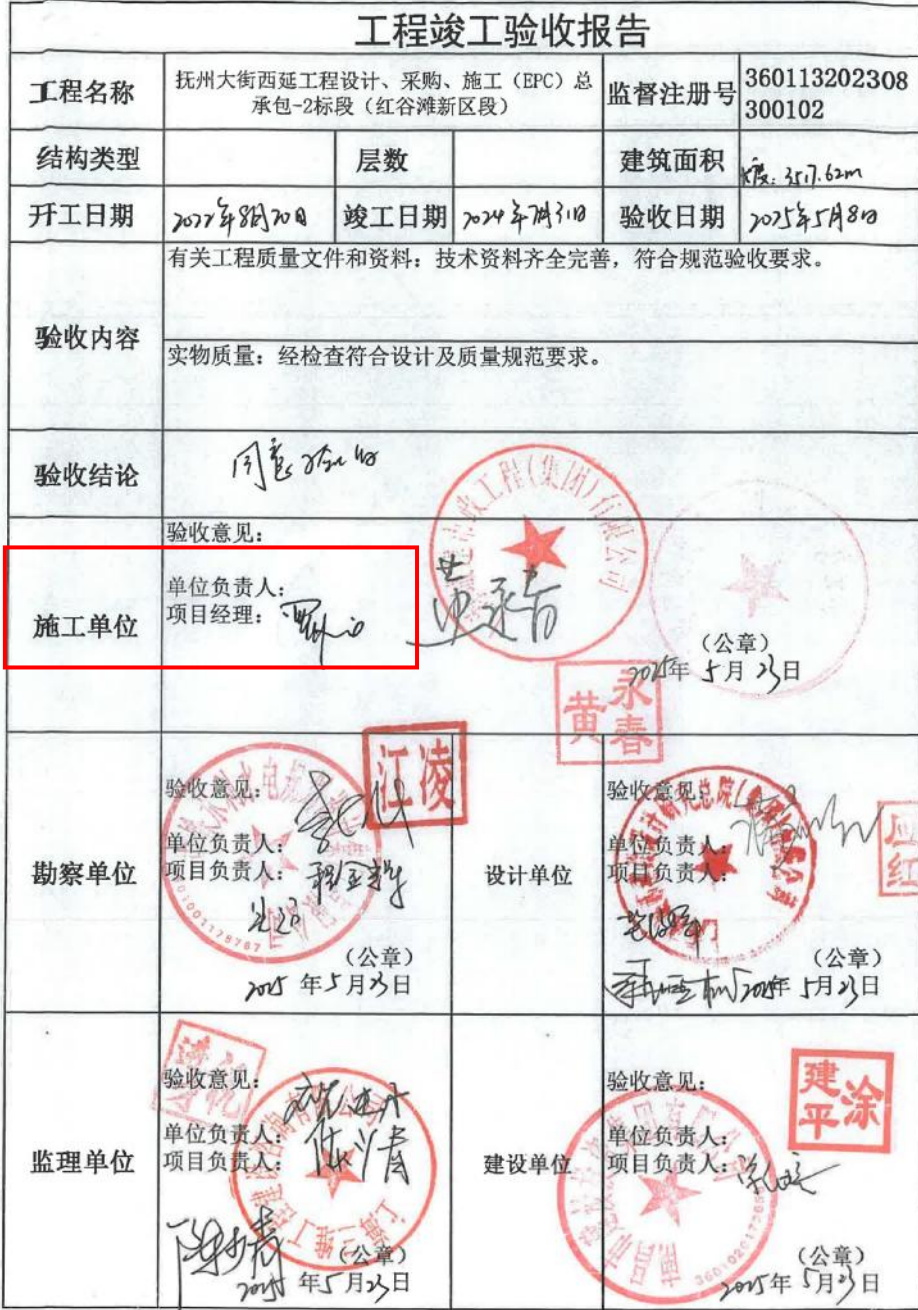 工程竣工验收报告
工程名称
抚州大街西延工程设计、采购、施工（EPC）总
承包-2标段（红谷滩新区段）
监督注册号
360113202308
300102
结构类型
层数
建筑面积
长度: 3517.62m
开工日期
2022年8月20日
竣工日期
2024年7月31日
验收日期
2025年5月8日
验收内容
有关工程质量文件和资料：技术资料齐全完善，符合规范验收要求。
实物质量：经检查符合设计及质量规范要求。
验收结论
同意验收
施工单位
验收意见：
单位负责人：
项目经理：
（公章）
2025年 5月 23日
黄永春
勘察单位
验收意见：
江凌
单位负责人：
项目负责人：
（公章）
2025 年5月23日
设计单位
验收意见：
单位负责人：
项目负责人：
应红
（公章）
2025年 5月23日
监理单位
验收意见：
单位负责人：
项目负责人：
（公章）
2025 年5月23日
建设单位
验收意见：
涂建平
单位负责人：
项目负责人：
（公章）
2025年 5月23日